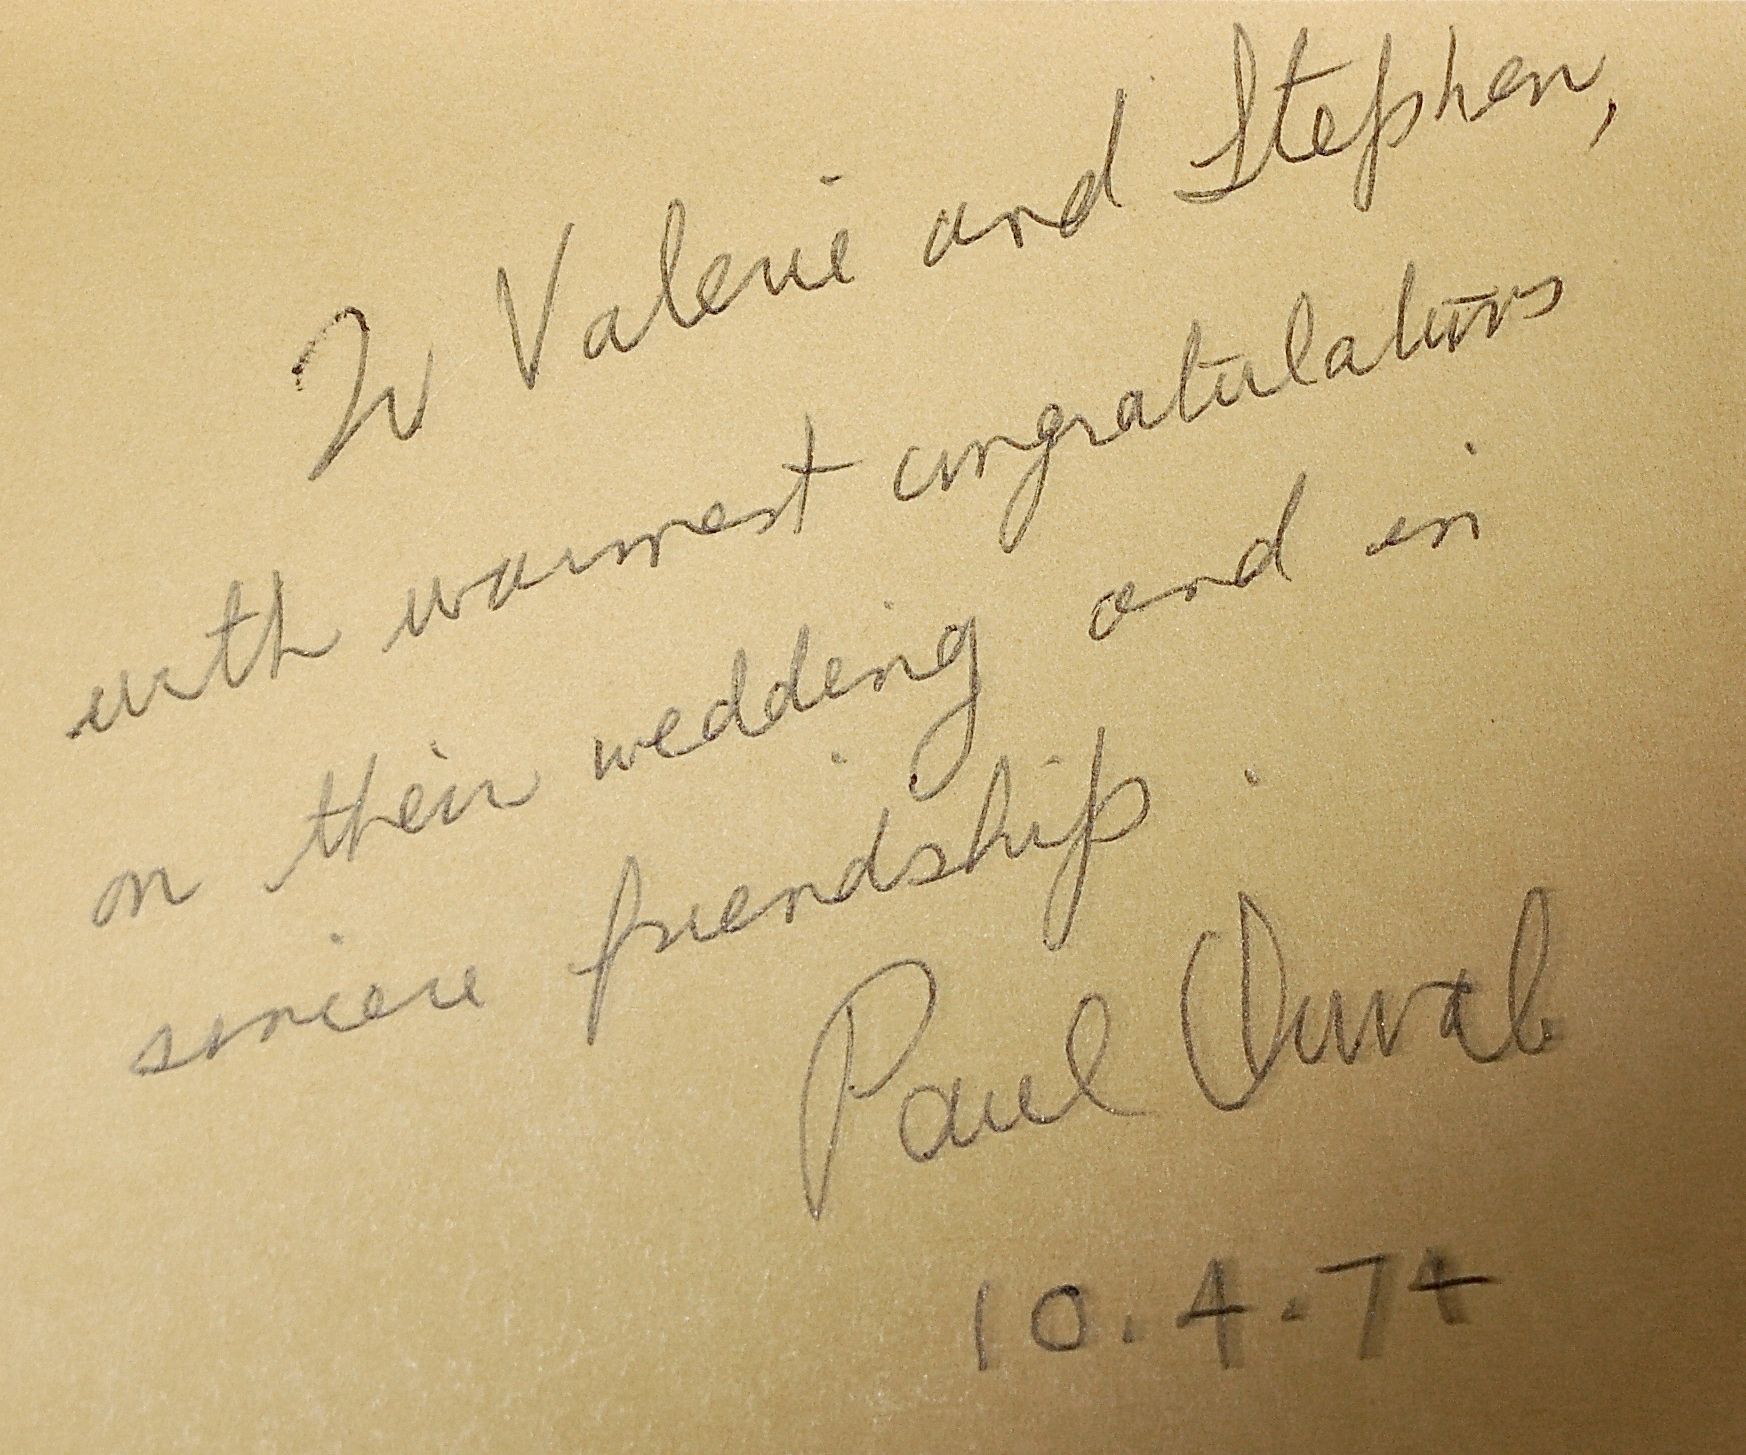 To Valerie and Stephen,
with warmest congratulations
on their wedding and in
sincere friendship.
Paul Duval
10.4.74